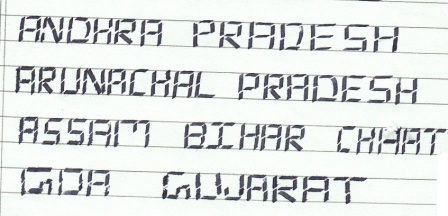 ANDHRA PRADESH
ARUNACHAL PRADESH
ASSAM BIHAR CHHAT
GOA GUJARAT